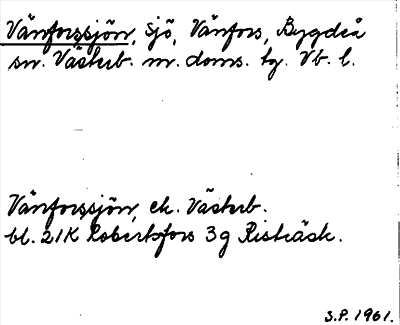 Vänforssjön, sjö, Vänfors, Bygdeå
sn. Västerb. n. doms. tg. Vb. l.
Vänforssjön, ek. Västerb.
bl. 21K Robertsfors 3g Risträsk.
S.P. 1961.